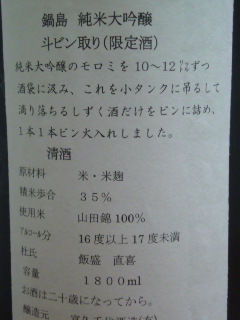 鍋島 純米大吟醸
斗ビン取り(限定酒)
純米大吟醸のモロミを10～12㍑ずつ
酒袋に汲み、これを小タンクに吊るして
滴り落ちるしずく酒だけをビンに詰め、
1本1本ビン火入れしました。
清酒
原材料 米・米麹
精米歩合 35%
使用米 山田錦100%
アルコール分 16度以上17度未満
杜氏 飯盛 直喜
容量 1800ml
お酒は二十歳になってから。
醸造元 富久千代酒造(有)